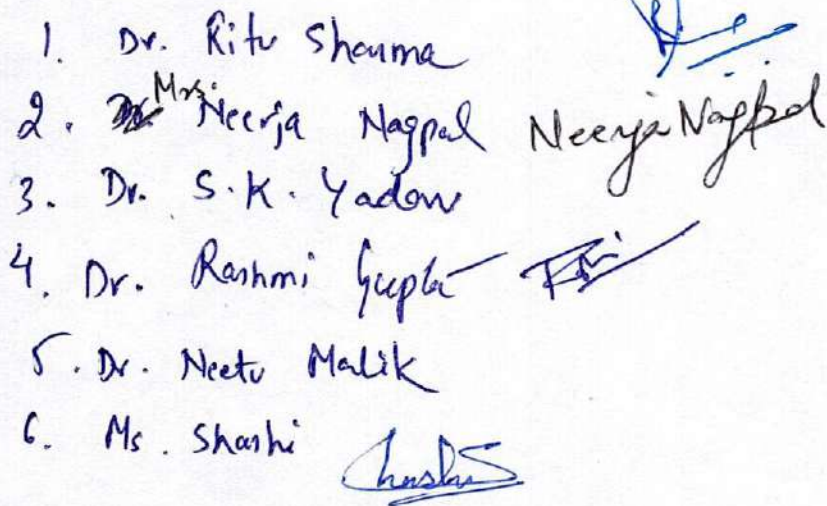 1. Dr. Ritu Sharma
2. Mrs. Neerja Nagpal Neerja Nagpal
3. Dr. S.K. Yadav
4. Dr. Rashmi Gupta
5. Dr. Neetu Malik
6. Ms. Shashi